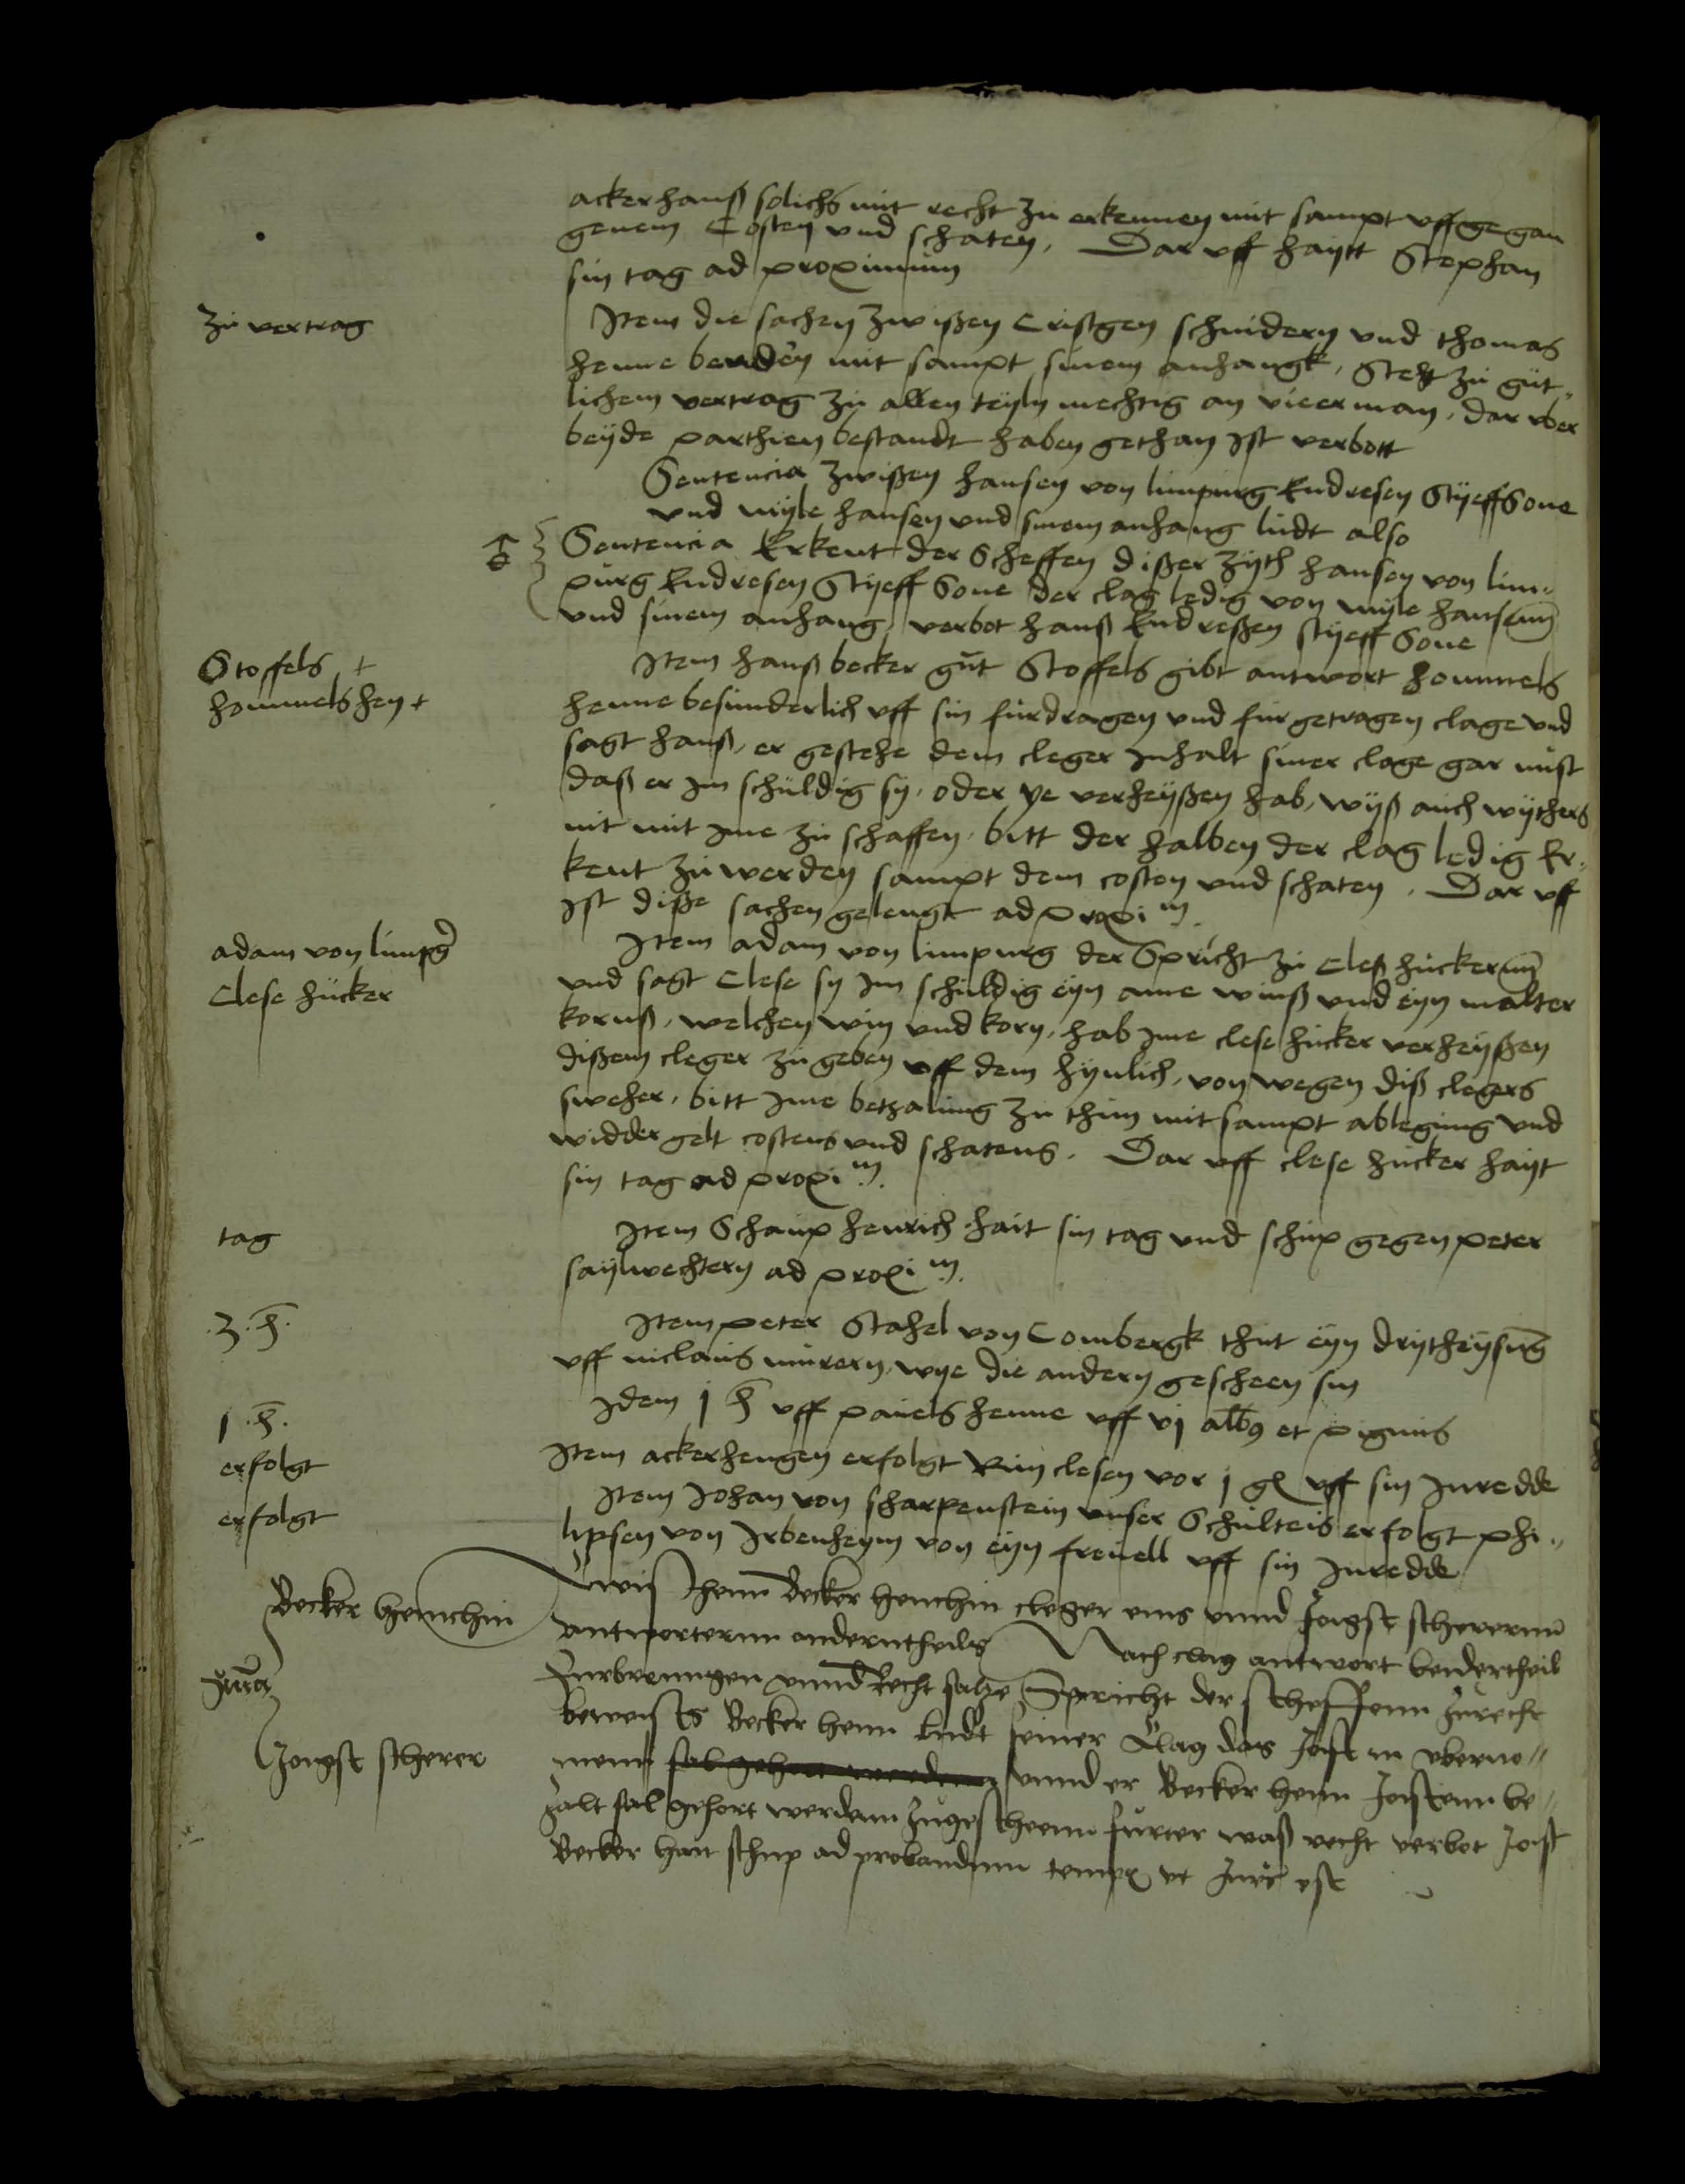 ackerhanß solichs mit recht zu erkennen mit sampt uffgegan
genem Costen und schaten. Dar uff haytt Stephan
sin tag ad proximum
zu vertrag
Item die sachen zwißen Cristgen schnidern und thomas
henne beuden mit sampt sinem anhangk, steht zu güt„
lichem vertrag zu allen teyln mechtig an vieer man, dar uber
beyde parthien bestandt haben gethan Ist verbott
Sentencia zwißen hansen von limpurg Endresen Styeffsone
und wyle hansen und sinem anhang ludt also
Sentencia Erkent der Scheffen dißer zyth hansen von lim„
purg Endresen Styeff Sone der clag ledig von wyle hansenn
und sinem anhang, verbot hanß Endreßen styeff Sone
Stoffels +
hommels hen +
Item hanß becker gut Stoffels gibt antwort hommels
henne besunderlich uff sin furdragen und fur getragen clage und
sagt hanß, er gestehe dem cleger Inhalt siner clage gar nust
daß er Im schuldig sy, oder ye verheyßen hab, wyß auch wythers
nit mit Ime zu schaffen, bitt der halben der clag ledig Er„
kent zu werden sampt dem costen und schaten. Dar uff
Ist diße sachen gelengt ad proxi m
adam von limpg
Clese hucker
Item adam von limpurg der Spricht zu Cleß huckernn
und sagt Clese sy Im schuldig eyn ame winß und eyn malter
kornß, welchen win und korn, hab Ime clese hucker verheyßen
dißem cleger zu geben uff dem hynlich, von wegen diß clegers
sweher, bitt Ime betzalung zu thun mit sampt ablegung und
widdergelt costens und schatens. Dar uff clese hucker hayt
sin tag ad proxi m
tag
Item Schaup henrich hait sin tag und schup gegen peter
saylwechtern ad proxi m
.3.h.
Item peter Stahel von Combergk thut eyn drytheysung
uff niclaus murern, wye die andern gescheen sin
1.h.
Idem j h uff pauels henne uff vj alb9 et pignus
erfolgt
Item ackerhengen erfolgt clesen vor j gl uff sin Inredde
erfolgt
Item Johan von scharpenstein unser Schulteis erfolgt phi„
lipsen von Irbenheym von eyn freuell uff sin Inredde
Becker henchin
Zwischenn Becker henchin cleger eins unnd Joigst scherernn
antworternn anderntheils Nach clag antwort beydertheil
Furbrenngen unnd Recht satze Spricht der scheffenn Zurecht
beweists Becker henn ludt seiner Clag das Joist in uberno„
Joigst scherer
menn sal gehort werdenn unnd er Becker henn Joistenn be„
zalt sal gehort werdenn zugescheenn furter waß recht verbot Joist
Becker hatt schup ad probandum temp ut Juris est